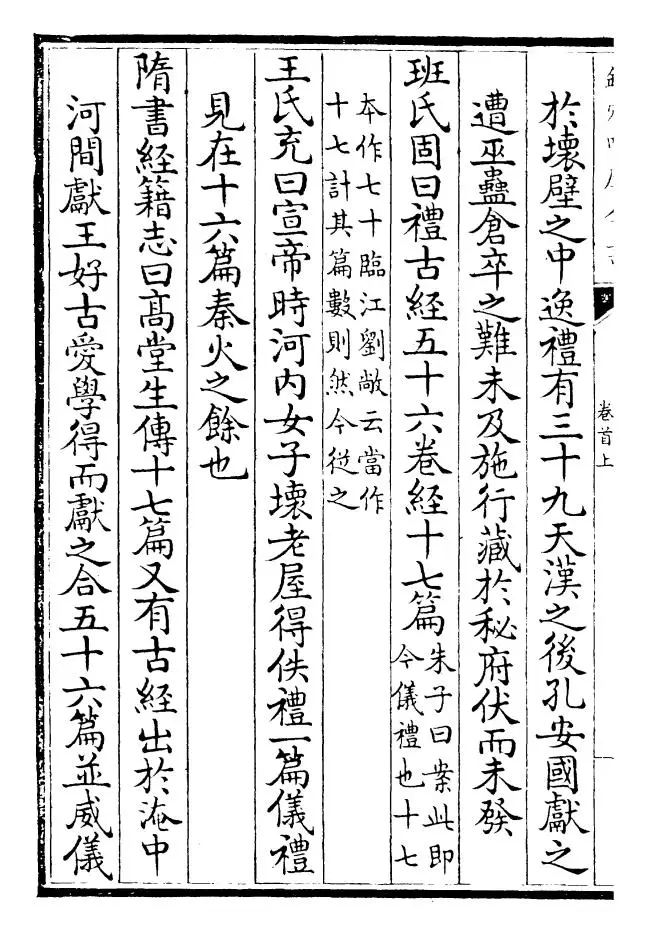 卷首上
一
於壞壁之中逸禮有三十九天漢之後孔安國獻之
遭巫蠱倉卒之難未及施行藏於秘府伏而未發
班氏固曰禮古經五十六卷經十七篇朱子曰案此即
今儀禮也十七
本作七十臨江劉敞云當作
十七計其篇數則然今從之
王氏充曰宣帝時河内女子壞老屋得佚禮一篇儀禮
見在十六篇秦火之餘也
隋書經籍志曰髙堂生傳十七篇又有古經出於淹中
河間獻王好古愛學得而獻之合五十六篇並威儀